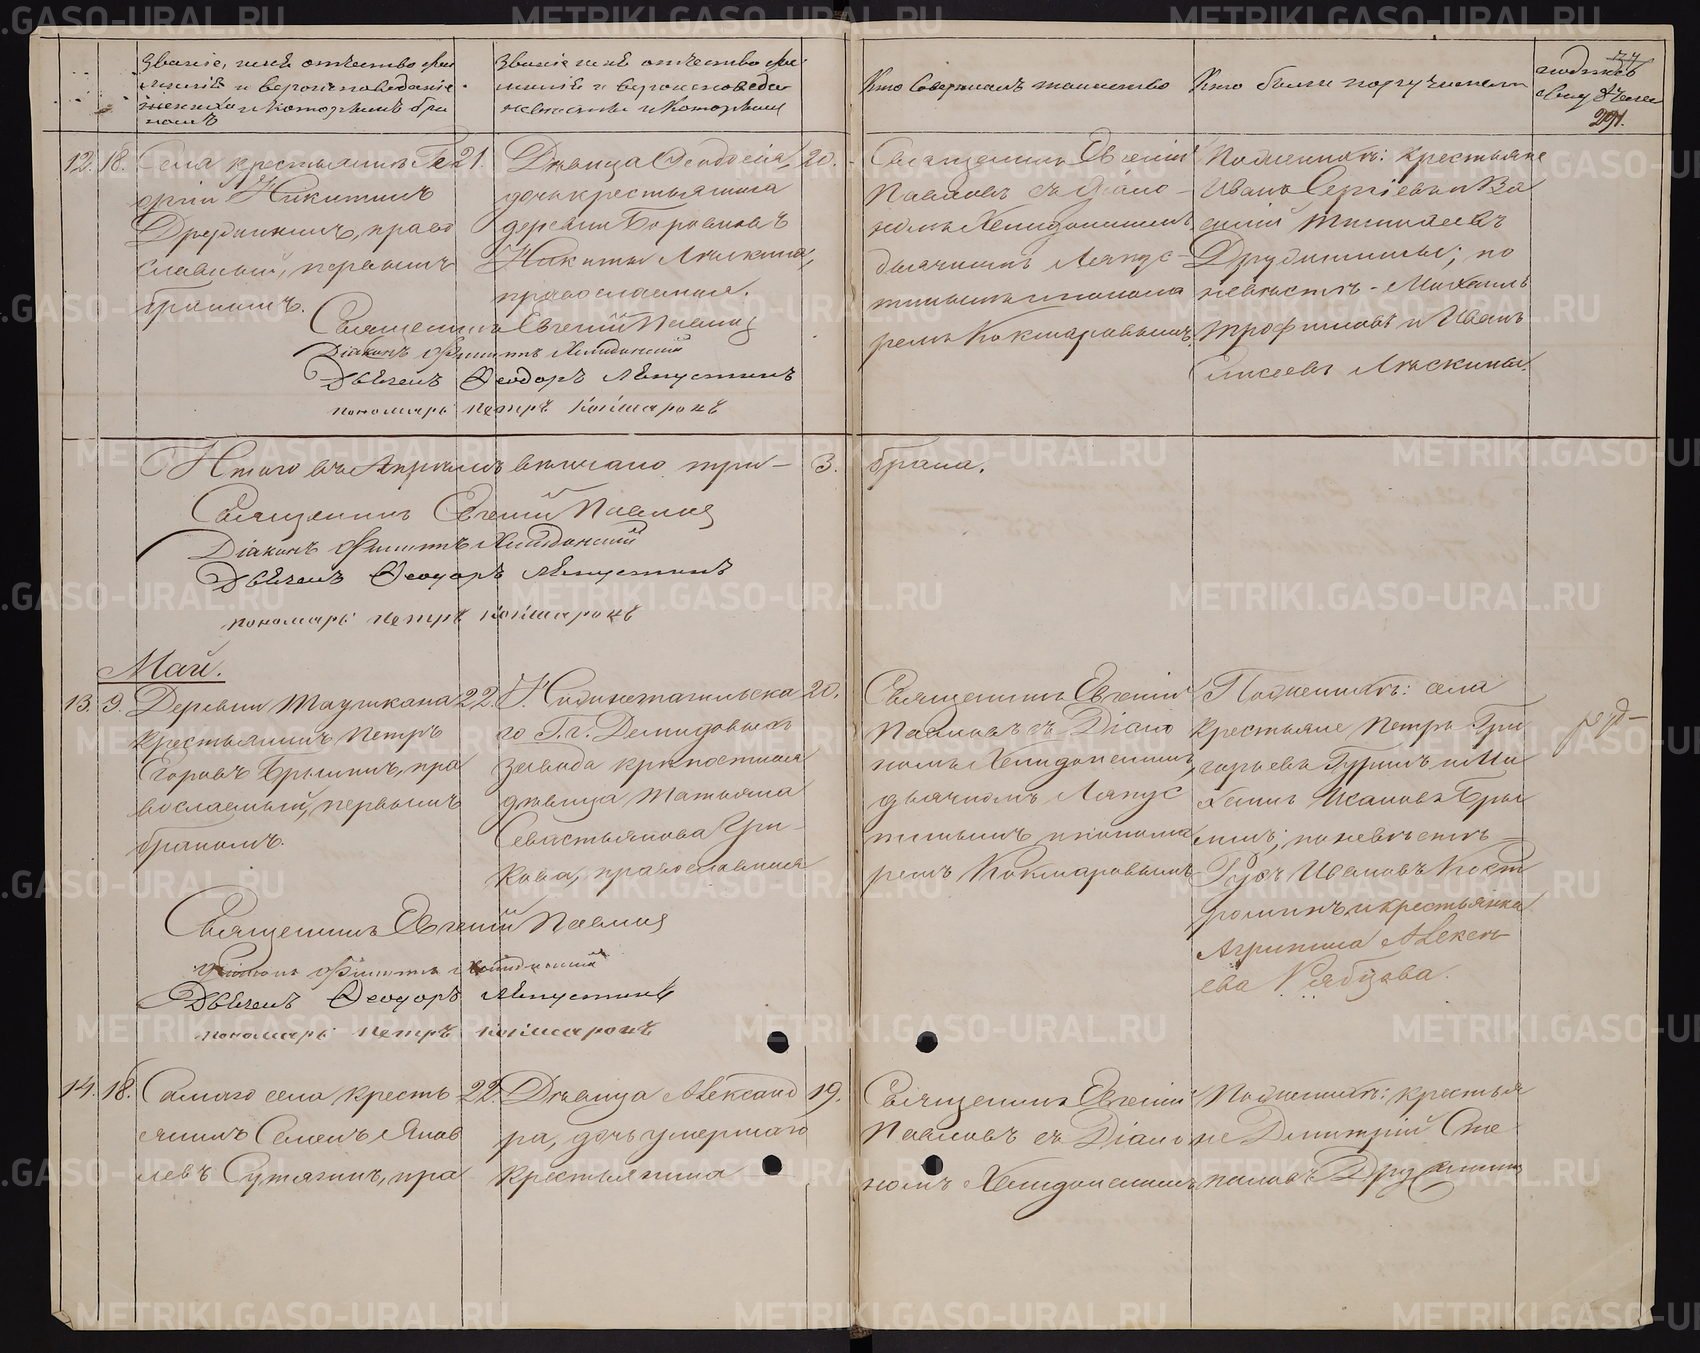 Званіе, имя отчество фа
милія и вероисповеданіе
жениха и которымъ бра
комъ
Званіе имя отчество фа
милія и вероисповеда
невесты и которымъ
Кто Совершалъ таинство
Кто были поручители
74
291.
12. 18. Села крестьянинъ Ге
оргій Никитинъ
православный, первымъ
бракомъ.
21.
Дѣвица Ѳеодосія,
дочь крестьянина
деревни Боровиковъ
Никиты Ляскина,
православная.
20.
Священникъ Евгеній
Павловъ съ Діако
номъ Хелидонскимъ
дьячкомъ Ляпус
тинымъ и понома
ремъ Кокшаровымъ
По женихѣ: крестьяне
Иванъ Сергіевъ и Ва
силій Тимофеевъ
по
невѣстѣ - Михаилъ
Трофимовъ и Иванъ
Елисеевъ Ляскины.
Священникъ Евгеній Павловъ
Діаконъ Филиппъ Хелидонскій
Дьячекъ Ѳеодоръ Ляпустинъ
пономарь Петръ Кокшаровъ
Итого въ Апрѣлѣ вѣнчано три — 3. брака.
Священникъ Евгеній Павловъ
Діаконъ Филиппъ Хелидонскій
Дьячекъ Ѳеодоръ Ляпустинъ
пономарь Петръ Кокшаровъ
Май.
13. 9. Деревни Таушкана
крестьянинъ Петръ
Егоровъ Брылинъ, пра
вославный, первымъ
бракомъ.
22.
Нижнетагильска
го Г.г. Демидовыхъ
завода крѣпостная
дѣвица Татьяна
Севастьянова
православная
20.
Священникъ Евгеній
Павловъ съ Діако
номъ Хелидонскимъ,
дьячкомъ Ляпус
тинымъ и понома
ремъ Кокшаровымъ
По женихѣ: села
крестьяне Петръ Гри
горьевъ Гуринъ и Ми
хаилъ Ивановъ Бры
линъ; по невѣстѣ —
Ивановъ Кост
роминъ и крестьянка
Агрипина Алексѣ
ева Рябцова.
Священникъ Евгеній Павловъ
Діаконъ Филиппъ Хелидонскій
Дьячекъ Ѳеодоръ Ляпустинъ
пономарь Петръ Кокшаровъ
14. 18. Самаго села кресть
янинъ Семенъ Яков
левъ Сутягинъ, пра
22.
Дѣвица Александ
ра, дочь умершаго
крестьянина
19.
Священникъ Евгеній
Павловъ съ Діако
номъ Хелидонскимъ,
По женихѣ: крестья
не Дмитрій Сте
пановъ
METRIKI.GASO-URAL.RU